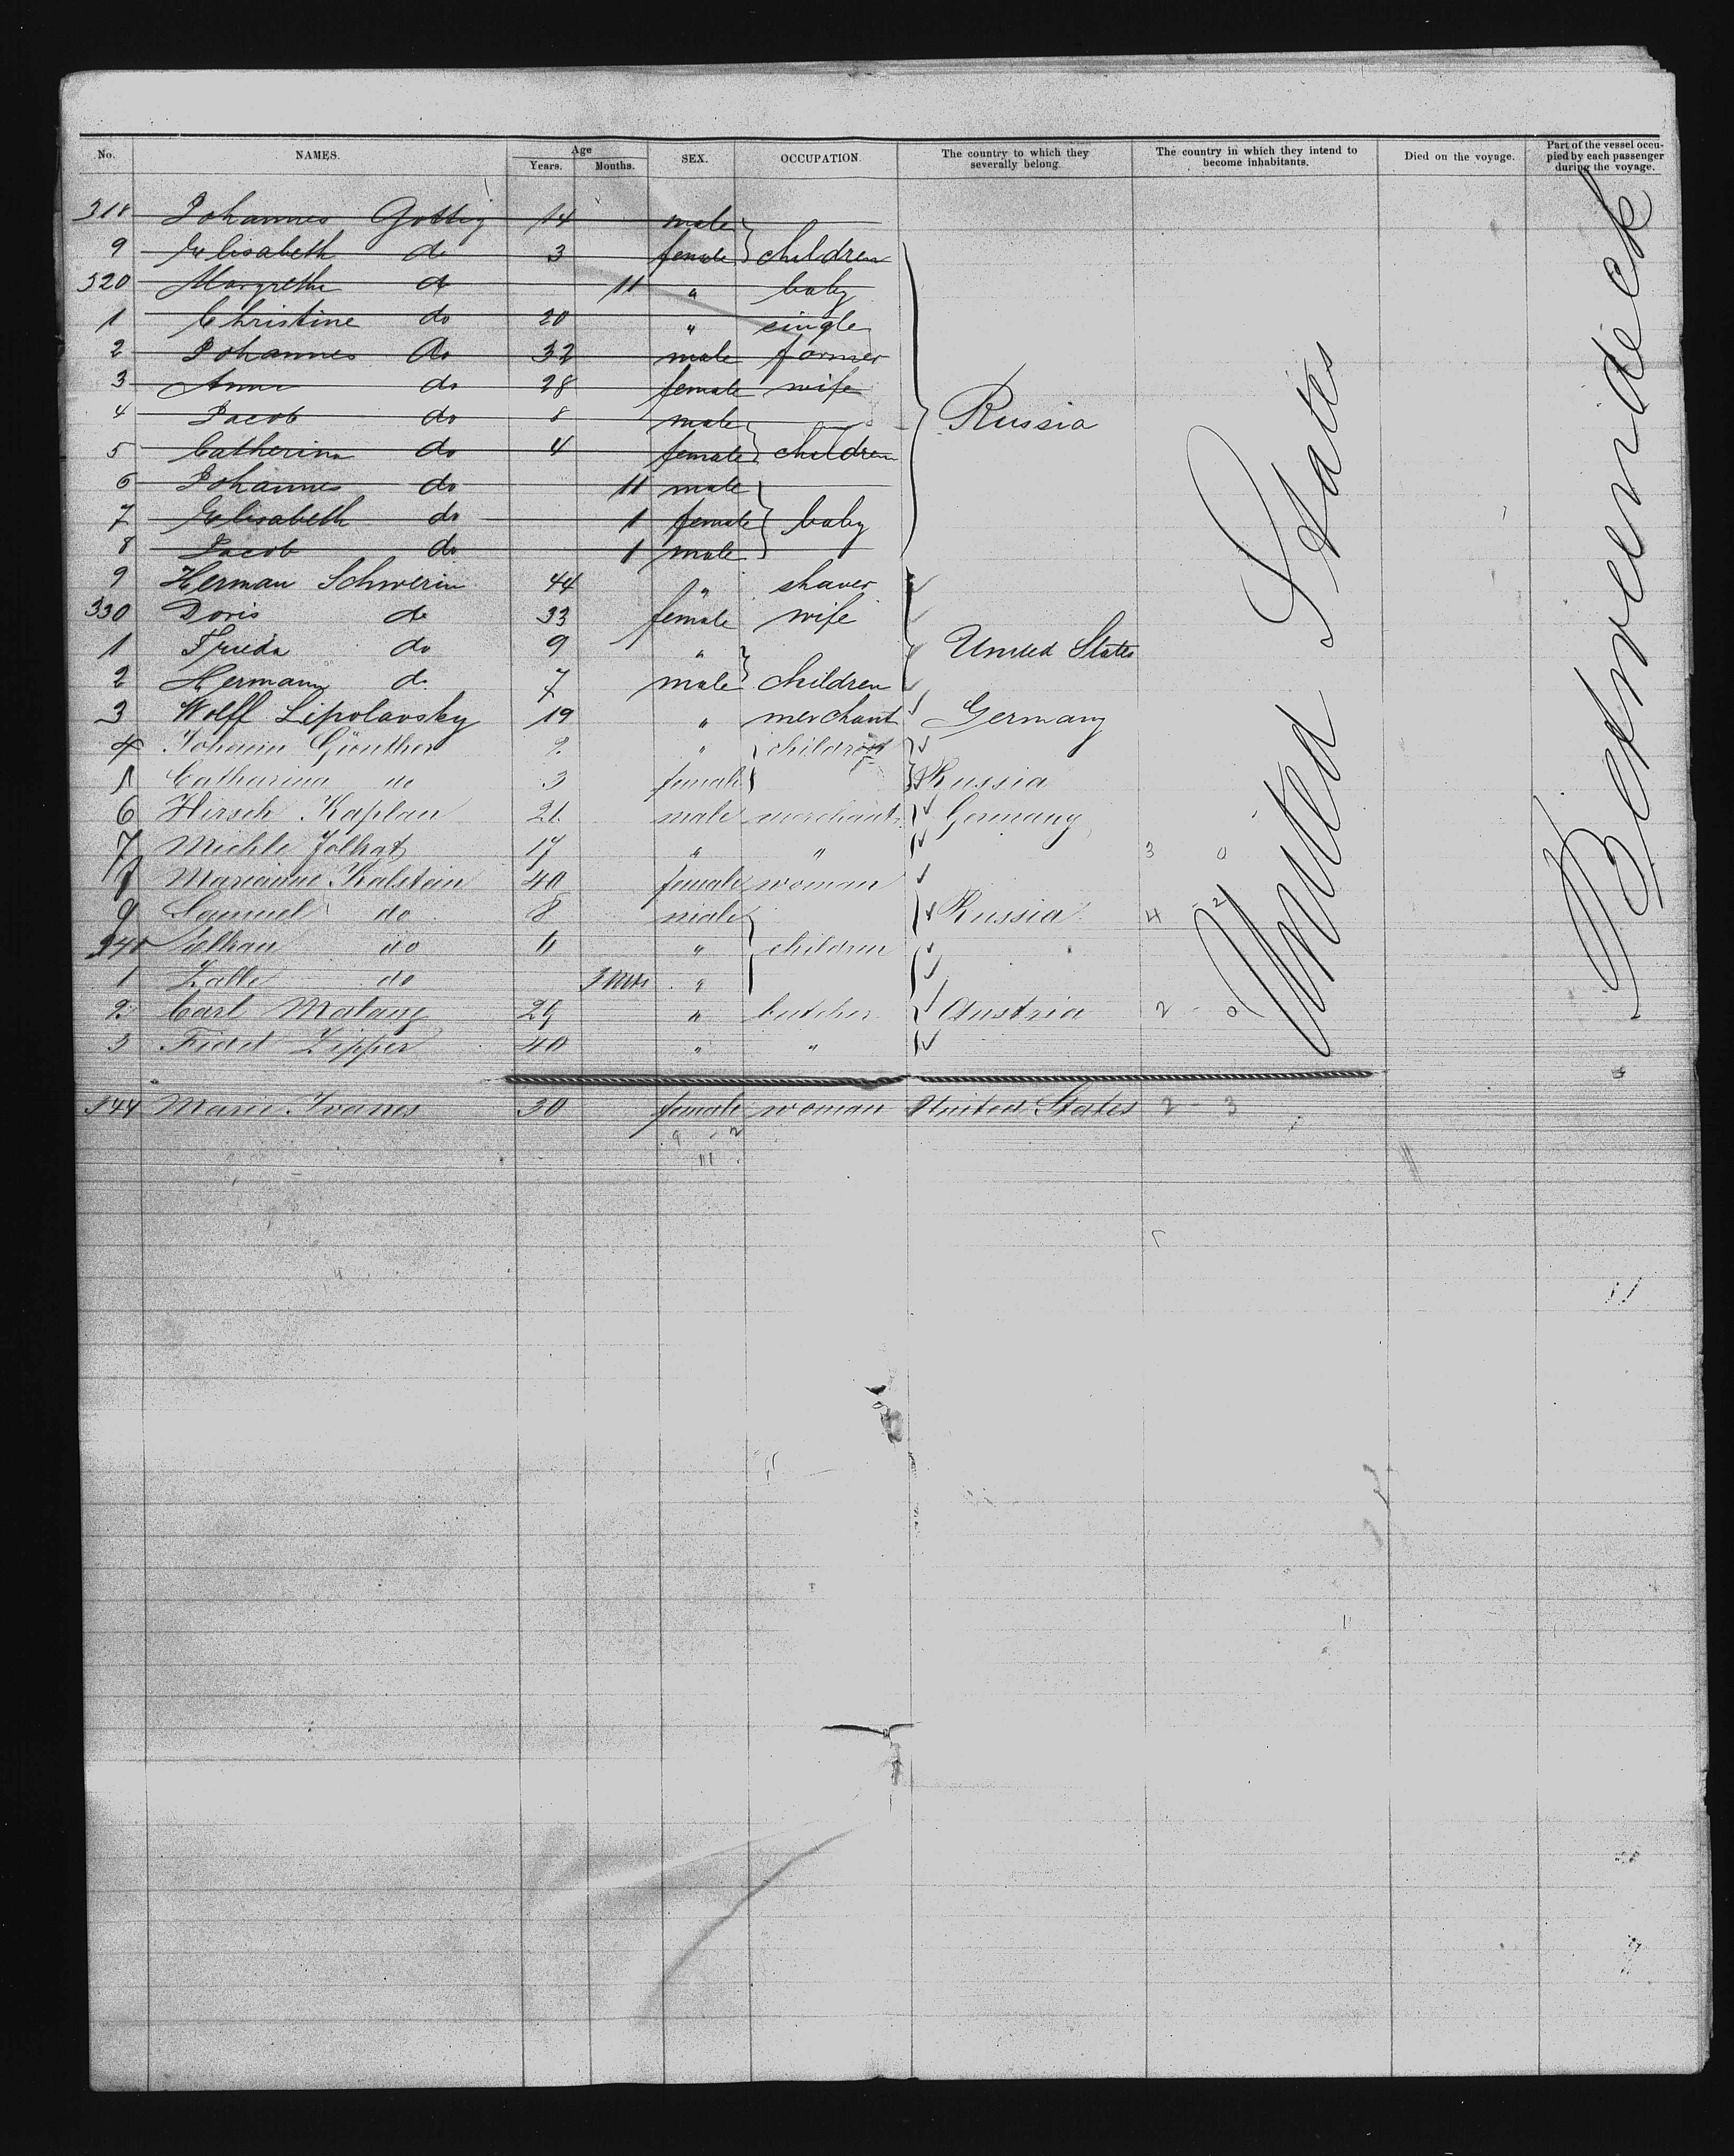 No. NAMES. Age Years. Months. SEX. OCCUPATION. The country to which they severally belong. The country in which they intend to become inhabitants. Died on the voyage. Part of the vessel occupied by each passenger during the voyage.
318 Johannes Gottig 14 male
9 Elisabeth do 3 female children
320 Margrethe do 11 " baby
1 Christine do 20 " single
2 Johannes do 32 male farmer
3 Anna do 28 female wife
4 Jacob do 8 male Russia
5 Catherina do 4 female children
6 Johannes do 11 male
7 Elisabeth do 1 female baby
8 Jacob do 1 male
9 Herman Schwerin 44 " shaver
330 Doris do 33 female wife
1 Frieda do 9 " United States
2 Hermann do 7 male children
3 Wolff Lipolavsky 19 " merchant Germany
4 Johann Günther 2 " children
Catharina do 3 female Russia
6 Hirsch Kaplan 21 male merchant Germany
7 Michle 17 " " 3 0
Marianne Kalstein 40 female woman
9 Samuel do 8 male Russia 4 - 2
340 do " children
1 do 3 mts "
2 Carl 29 " butcher Austria 2 - 0
3 Zipper 40 " "
344 Marie 30 female woman United States 2 - 3
9 - 2
11
United States
Betweendeck